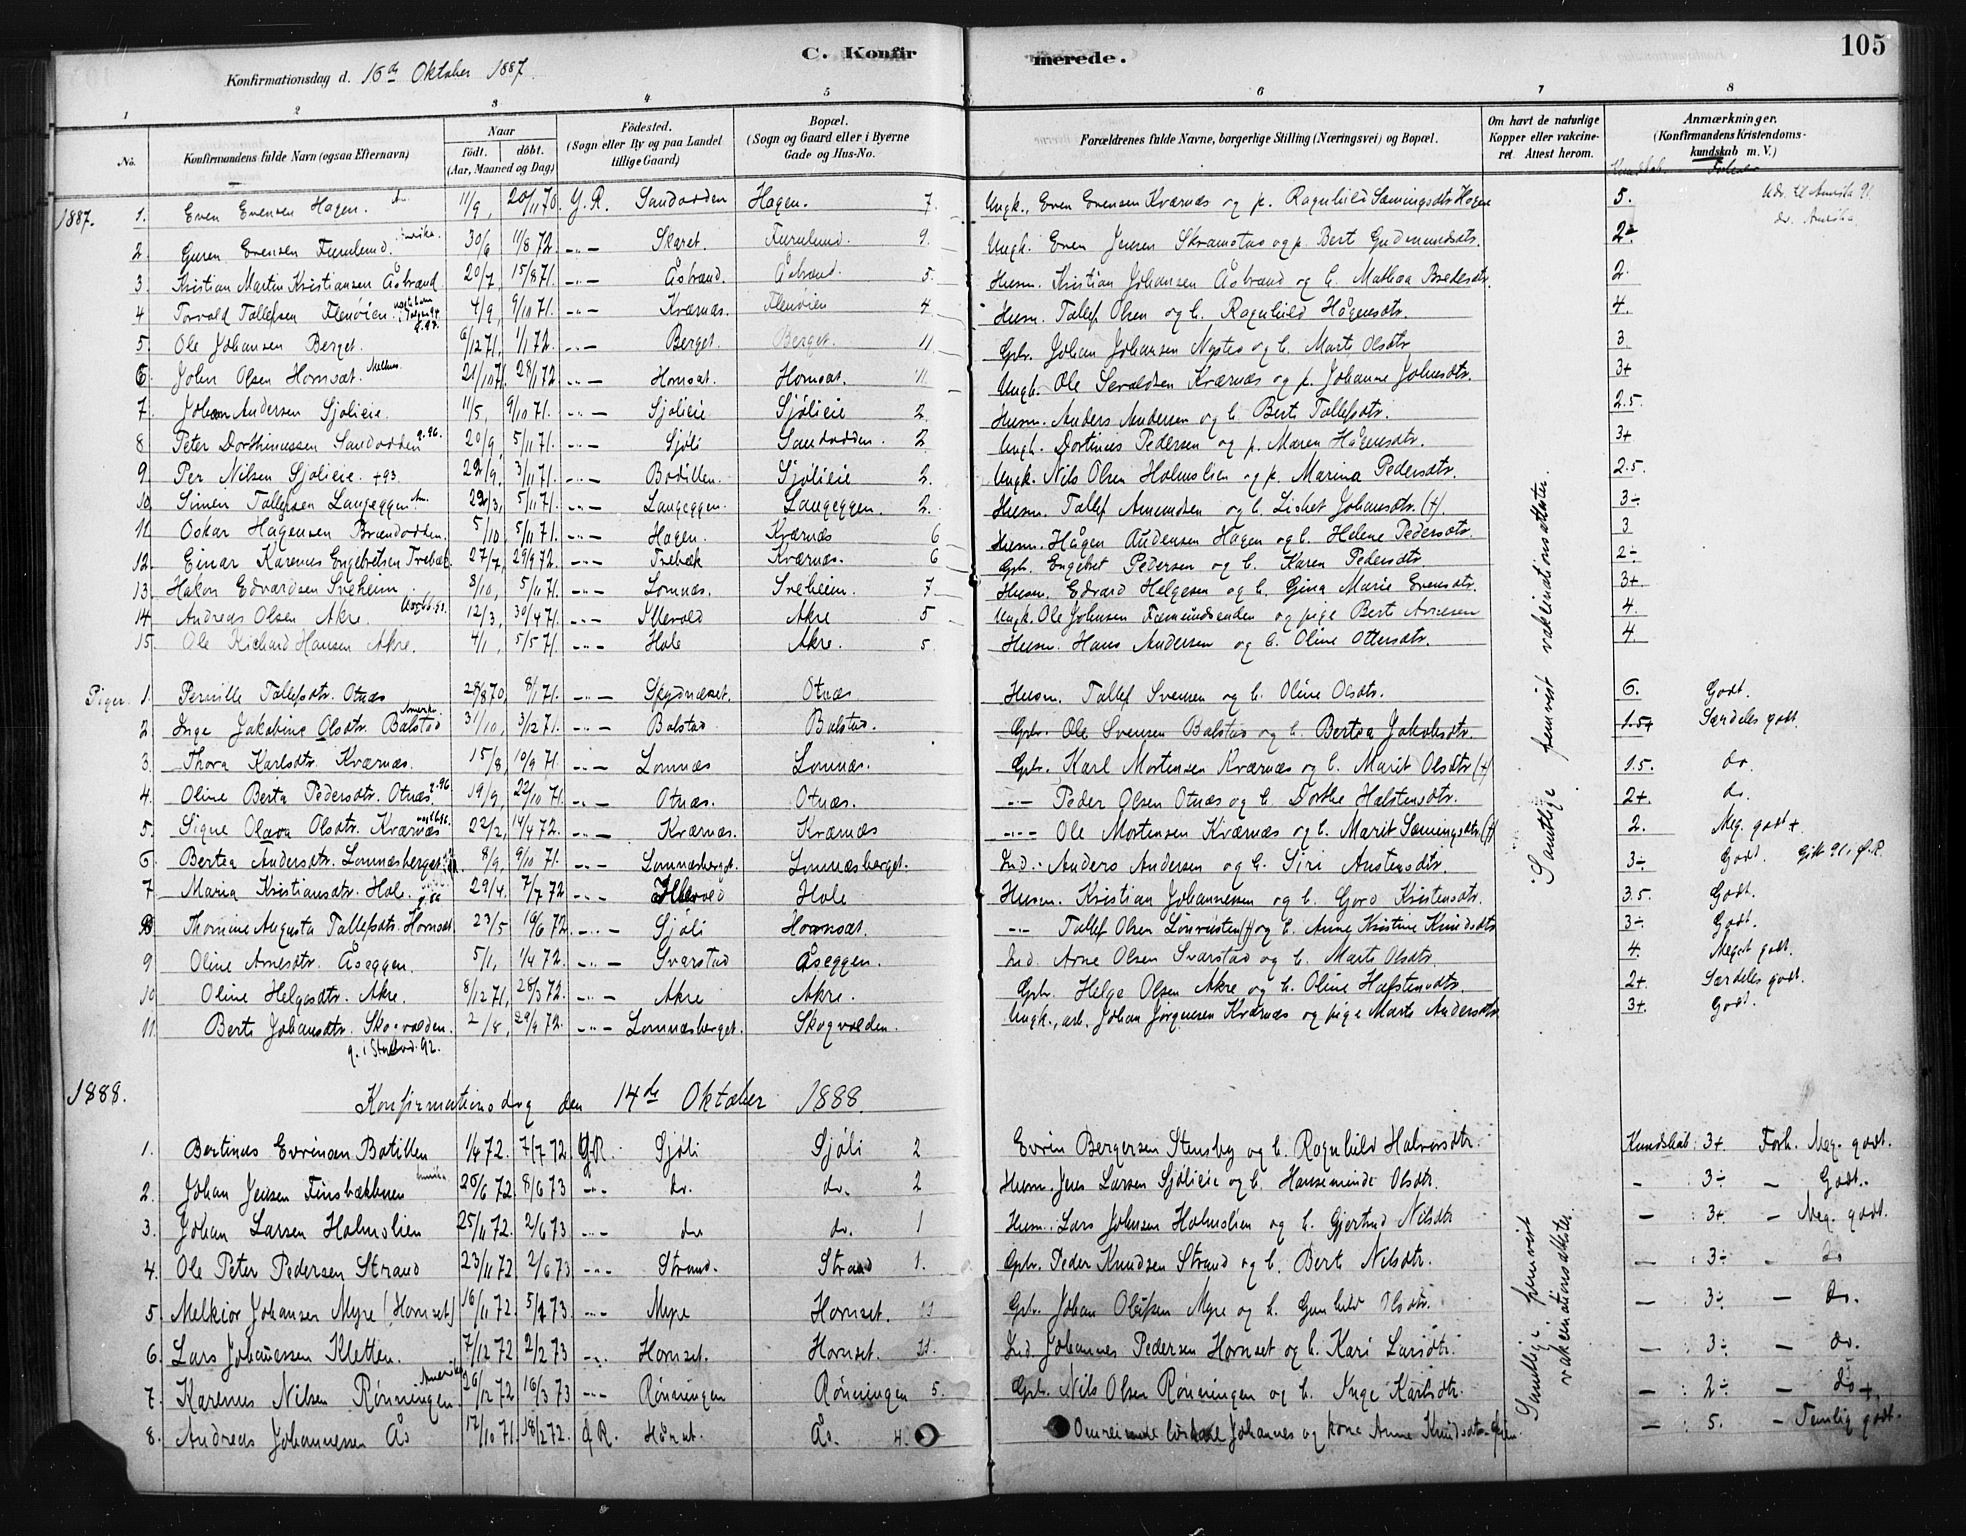 C. Konfirmerede.
105
Konfirmationsdag d. 16de Oktober 1887.
1 2 3 4 5 6 7 8
No. Konfirmandens fulde Navn (ogsaa Efternavn) Naar født. døbt. (Aar, Maaned og Dag) Fødested. (Sogn eller By og paa Landet tillige Gaard) Bopæl. (Sogn og Gaard eller i Byerne Gade og Hus-No. Forældrenes fulde Navne, borgerlige Stilling (Næringsvei) og Bopæl. Om havt de naturlige Kopper eller vakcineret. Attest herom. Anmærkninger. (Konfirmandens Kristendomskundskab m. V.)
1887. 1. Even Evensen Hagen. 11/9, 20/11 70. Y. R. Sandodden Hagen. 7. Ungk., Even Evensen Kværnæs og p. Ragnhild Sæmingsdtr Hagen 5.
2 Evensen Furulund. 30/6 11/8 72. -"- Skaret. Furulund. 9. Ungk. Even Jensen og p. Berit Gudmundsdtr. 2-
3. Kristian Martin Kristiansen Åsbrænd 20/7, 15/8 71. -"- Åsbrænd. Åsbrænd. 5. Husm. Kristian Johansen Åsbrænd og h. Mathea 2.
4 Torvald Tollefsen Flenøien. 4/9, 9/10 71. -"- Kværnæs. Flenøien 4 Husm. Tollef Olsen og h. Ragnhild Hågensdtr. 4.
5. Ole Johansen Berget. 6/12 71, 1/1 72. -"- Berget. Berget. 11 Gbr. Johan Johansen og h. Marte Olsdtr 3.
6 John Olsen Hornsæt. 21/10 71. 28/1 72. -"- Hornsæt. Hornsæt. 11 Ungk. Ole Kværnæs og p. Johanne Johnsdtr. 3+
7. Johan Andersen Sjølieie. 11/5, 9/10 71. -"- Sjølieie Sjølieie 2 Husm. Anders Andersen og h. Berit Tollefsdtr. 2.5.
8 Peter Dorthinussen Sandodden 20/9 5/11 71. -"- Sjøli Sandodden. 2 Ungk. Dortinus Pedersen og p. Maren Hågensdtr. 3+
9 Per Nilsen Sjølieie. +93 22/9, 3/11 71. -"- Botillen. Sjølieie 2. Ungk. Nils Olsen Holmslien og p. Marina Pedersdtr. 2.5.
10. Simen Tollefsen Langeggen 22/3, 5/11 71. -"- Langeggen. Langeggen. 2. Husm. Tollef Amundsen og h. Lisbet Johansdtr. (+). 3-
11. Oskar Hågensen Brændodden. 5/10, 5/11 71. -"- Hagen. Kværnæs 6 Husm. Hågen Audensen Hagen og h. Helene Pedersdtr. 3
12. Einar Karenus Engebretsen Trebæk. 27/7, 29/9 72. -"- Trebæk Kværnæs. 6 Gbr. Engebret Pedersen og h. Karen Pedersdtr. 2-
13. Hakon Edvardsen Sveheim 8/10, 5/11 71. -"- Lomnæs. Sveheim. 7 Husm. Edvard Helgesen og h. Gina Marie Evensdtr. 3+.
14. Andreas Olsen Akre. 12/3, 30/4 71. -"- Akre 5 Ungk. Ole Johnsen Fæmundsenden og pige Berit Arnesen 4.
15. Ole Richard Hansen Akre. 4/1, 5/5 71. -"- Hole Akre. 5. Husm. Hans Andersen og h. Oline Ottersdtr. 4.
Samtlige fremvist vakcinationsattester.
Piger. 1. Pernille Tollefsdtr. Otnæs 28/8 70, 8/1 71. -"- Skydnæset. Otnæs. Husm. Tollef Svensen og h. Oline Olsdtr. 6. Godt.
2 Inge Jakobine Olsdtr. Balstad 31/10, 3/12 71. -"- Balstad Balstad. Gbr. Ole Svensen Balstad og h. Bertea Jakobsdtr. 1.5+ Særdeles godt.
3. Thora Karlsdtr. Kværnæs. 15/8, 10/9 71. -"- Lomnæs Lomnæs. Gbr. Karl Mortensen Kværnæs og h. Marit Olsdtr (+) 1.5. do.
4. Oline Berta Pedersdtr. Otnæs 19/9, 22/10 71. -"- Otnæs. Otnæs. -"- Peder Olsen Otnæs og h. Dorthe Halstensdtr. 2+. do.
5. Signe Olava Olsdtr. Kværnæs 22/2, 14/4 72. -"- Kværnæs. Kværnæs -"- Ole Mortensen Kværnæs og h. Marit Sæmingsdtr (+) 2. Meg. godt +
6. Bertea Andersdtr. Lomnæsberget. 8/9, 9/10 71. -"- Lomnæsberget. Lomnæsberget. Ind. Anders Andersen og h. Siri Anstensdtr. 3- Godt. Gift 91. Ø.R.
7. Maria Kristiansdtr. Hole. 29/4. 7/7 72 -"- Hole Husm. Kristian Johannessen og h. Gjoro Kristensdtr. 3.5. Godt.
8 Thomine Augusta Tollefsdtr. Hornsæt. 23/5 16/6 72. -"- Sjøli Hornsæt. -"- Tollef Olsen (+) og h. Anne Kristine Knudsdtr 3- Godt.
9 Oline Arnesdtr. Åseggen. 5/1, 1/4 72. -"- Svarstad Åseggen. Ind. Arne Olsen Svarstad og h. Marte Olsdtr. 4. Meget godt.
10 Oline Helgesdtr. Akre. 8/12 71, 28/3 72. -"- Akre Akre. Gbr. Helge Olsen Akre og h. Oline Halstensdtr. 2+ Særdeles godt.
11. Berte Johansdtr. Skogvolden. 2/8, 29/9 72. -"- Lomnæsberget. Skogvolden. Ungk., arb. Johan Jørgensen Kværnæs og pige Marte Andersdtr 3+ Godt.
1888. Konfirmationsdag den 14de Oktober 1888.
1. Bertinus Evensen Botillen 1/4 72. 7/7 72 Y.R. Sjøli Sjøli 2 Even Bergersen Stensby og h. Ragnhild Halvorsdtr. Kundskab: 3+ Forh. Meg. godt.
2. Johan Jensen Finsbækbunn 26/6 72. 8/6 73 -"- do. do. 2 Husm. Jens Larsen Sjølieie og h. Olsdtr. - : 3- - Godt.
3. Johan Larsen Holmslien 25/11 72. 2/6 73 -"- do do. 1 Husm. Lars Johnsen Holmslien og h. Gjertrud Nilsdtr - : 3+ - Meg. godt.
4. Ole Peter Pedersen Strand 23/11 72. 2/6 73 -"- Strand. Strand 1. Gbr. Peder Knudsen Strand og h. Berit Nilsdtr. - : 3- - do
5. Melkior Johansen Myre (Hornset) 16/11 72. 73 -"- Myre Hornset. 11 Gbr. Johan Olufsen Myre og h. Gunhild Olsdtr. - : 3- - do.
6. Lars Johannessen Kletten. 7/12 72 2/2 73 -"- Hornset. Hornset. 11. Ind. Johannes Pedersen Hornset og h. Kari Larsdtr. - : 3- - do.
7. Karenus Nilsen Rønningen Amerika 26/12 72 16/3 73 -"- Rønningen Rønningen 5. Gbr. Nils Olsen Rønningen og h. Inge Karlsdtr. - : 2- - do +.
8. Andreas Johannessen Ås 17/10 71. 18/2 72. R. Hornset. Ås. 4. Omreisende Johannes og kone Anne Knudsdtr - : 5. - Temlig godt.
Samtlige fremvist vakcinationsattester.